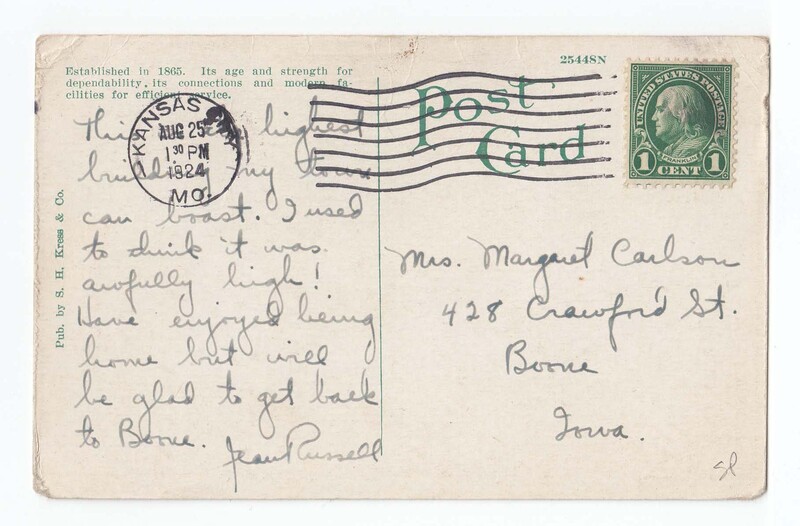 Established in 1865. Its age and strength for
dependability, its connections and modern fa-
cilities for efficient service.
25448N
Post
Card
UNITED STATES POSTAGE
FRANKLIN
1 CENT 1
KANSAS CITY
AUG 25
1 30 PM
1924
MO.
Pub. by S. H. Kress & Co.
This highest
building my town
can boast. I used
to think it was
awfully high!
Have enjoyed being
home but will
be glad to get back
to Boone.
Jean Russell
Mrs. Margaret Carlson
428 Crawford St.
Boone
Iowa.